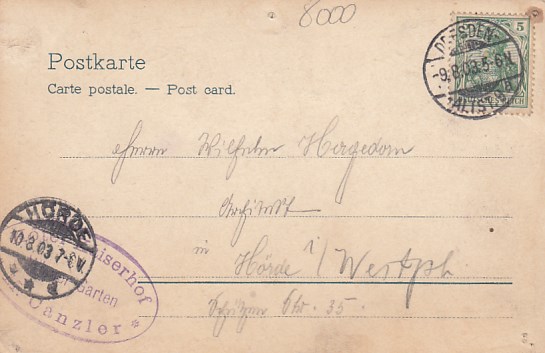 8000
Postkarte
Carte postale. — Post card.
5
DRESDEN-
-9.8.03.5-6N.
ALTST.
Herrn Wilhelm Hergedorn
Architekt
in
Hörde i/Westph.
Schützen Str. 35.
HÖRDE
10.8.03 7-8V.
Kaiserhof
Garten
Canzler *